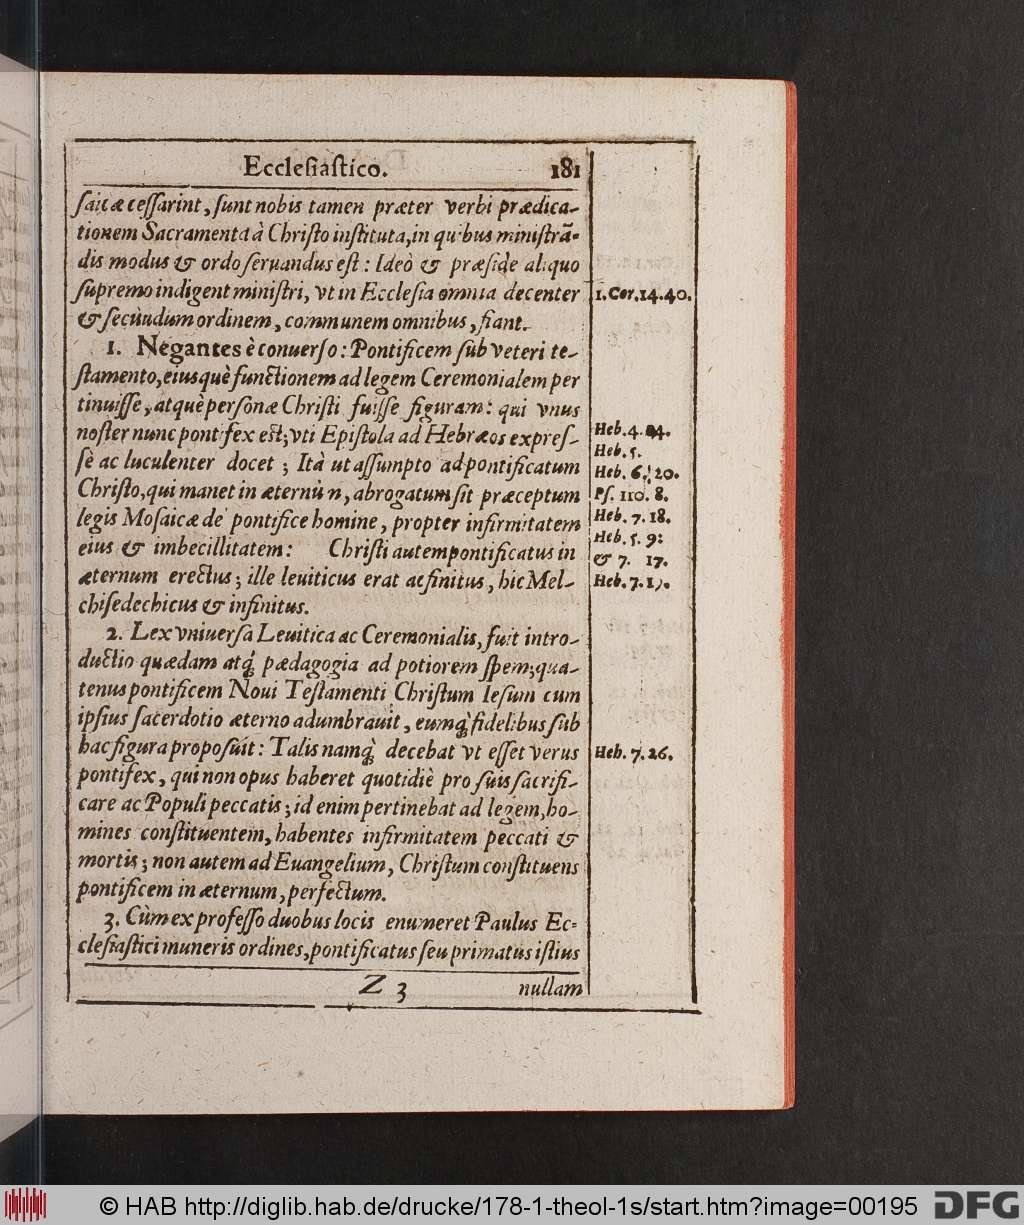 Ecclesiastico. 181
saicæ cessarint, sunt nobis tamen præter verbi prædica-
tionem Sacramenta à Christo instituta, in quibus ministrã-
dis modus & ordo seruandus est: Ideò & præside aliquo
supremo indigent ministri, vt in Ecclesia omnia decenter
1. Cor. 14. 40.
& secundum ordinem, communem omnibus, fiant.
1. Negantes è conuerso: Pontificem sub veteri te-
stamento, eiusquè functionem ad legem Ceremonialem per
tinuisse, atquè personæ Christi fuisse figuram: qui vnus
noster nunc pontifex est; vti Epistola ad Hebræos expres-
Heb. 4.
sè ac luculenter docet; Ità ut assumpto ad pontificatum
Heb. 5.
Heb. 6. 20.
Christo, qui manet in æternùm, abrogatum sit præceptum
Ps. 110. 8.
legis Mosaicæ de pontifice homine, propter infirmitatem
Heb. 7. 18.
eius & imbecillitatem: Christi autem pontificatus in
Heb. 5. 9:
& 7. 17.
æternum erectus; ille leuiticus erat ac finitus, hic Mel-
Heb. 7.
chisedechicus & infinitus.
2. Lex vniuersa Leuitica ac Ceremonialis, fuit intro-
ductio quædam atq́; pædagogia ad potiorem spem; qua-
tenus pontificem Noui Testamenti Christum Iesum cum
ipsius sacerdotio æterno adumbrauit, eumq́; fidelibus sub
hac figura proposuit: Talis namq́; decebat vt esset verus
Heb. 7. 26.
pontifex, qui non opus haberet quotidiè pro suis sacrifi-
care ac Populi peccatis; id enim pertinebat ad legem, ho-
mines constituentem, habentes infirmitatem peccati &
mortis; non autem ad Euangelium, Christum constituens
pontificem in æternum, perfectum.
3. Cùm ex professo duobus locis enumeret Paulus Ec-
clesiastici muneris ordines, pontificatus seu primatus istius
Z 3 nullam
© HAB http://diglib.hab.de/drucke/178-1-theol-1s/start.htm?image=00195 DFG